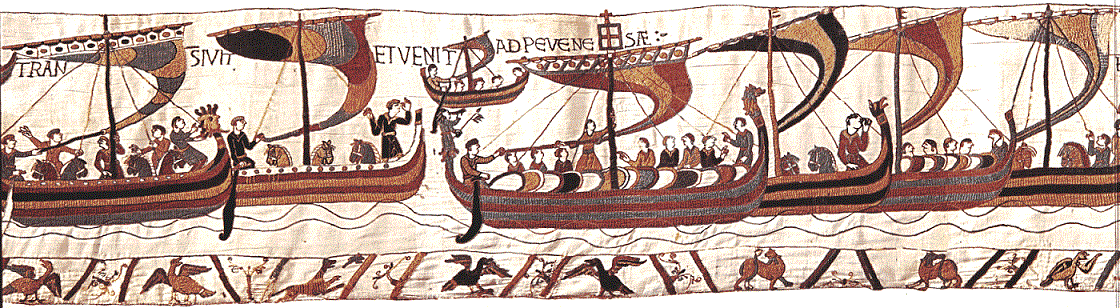 TRAN SIVIT ET VENIT AD PEVENESÆ: